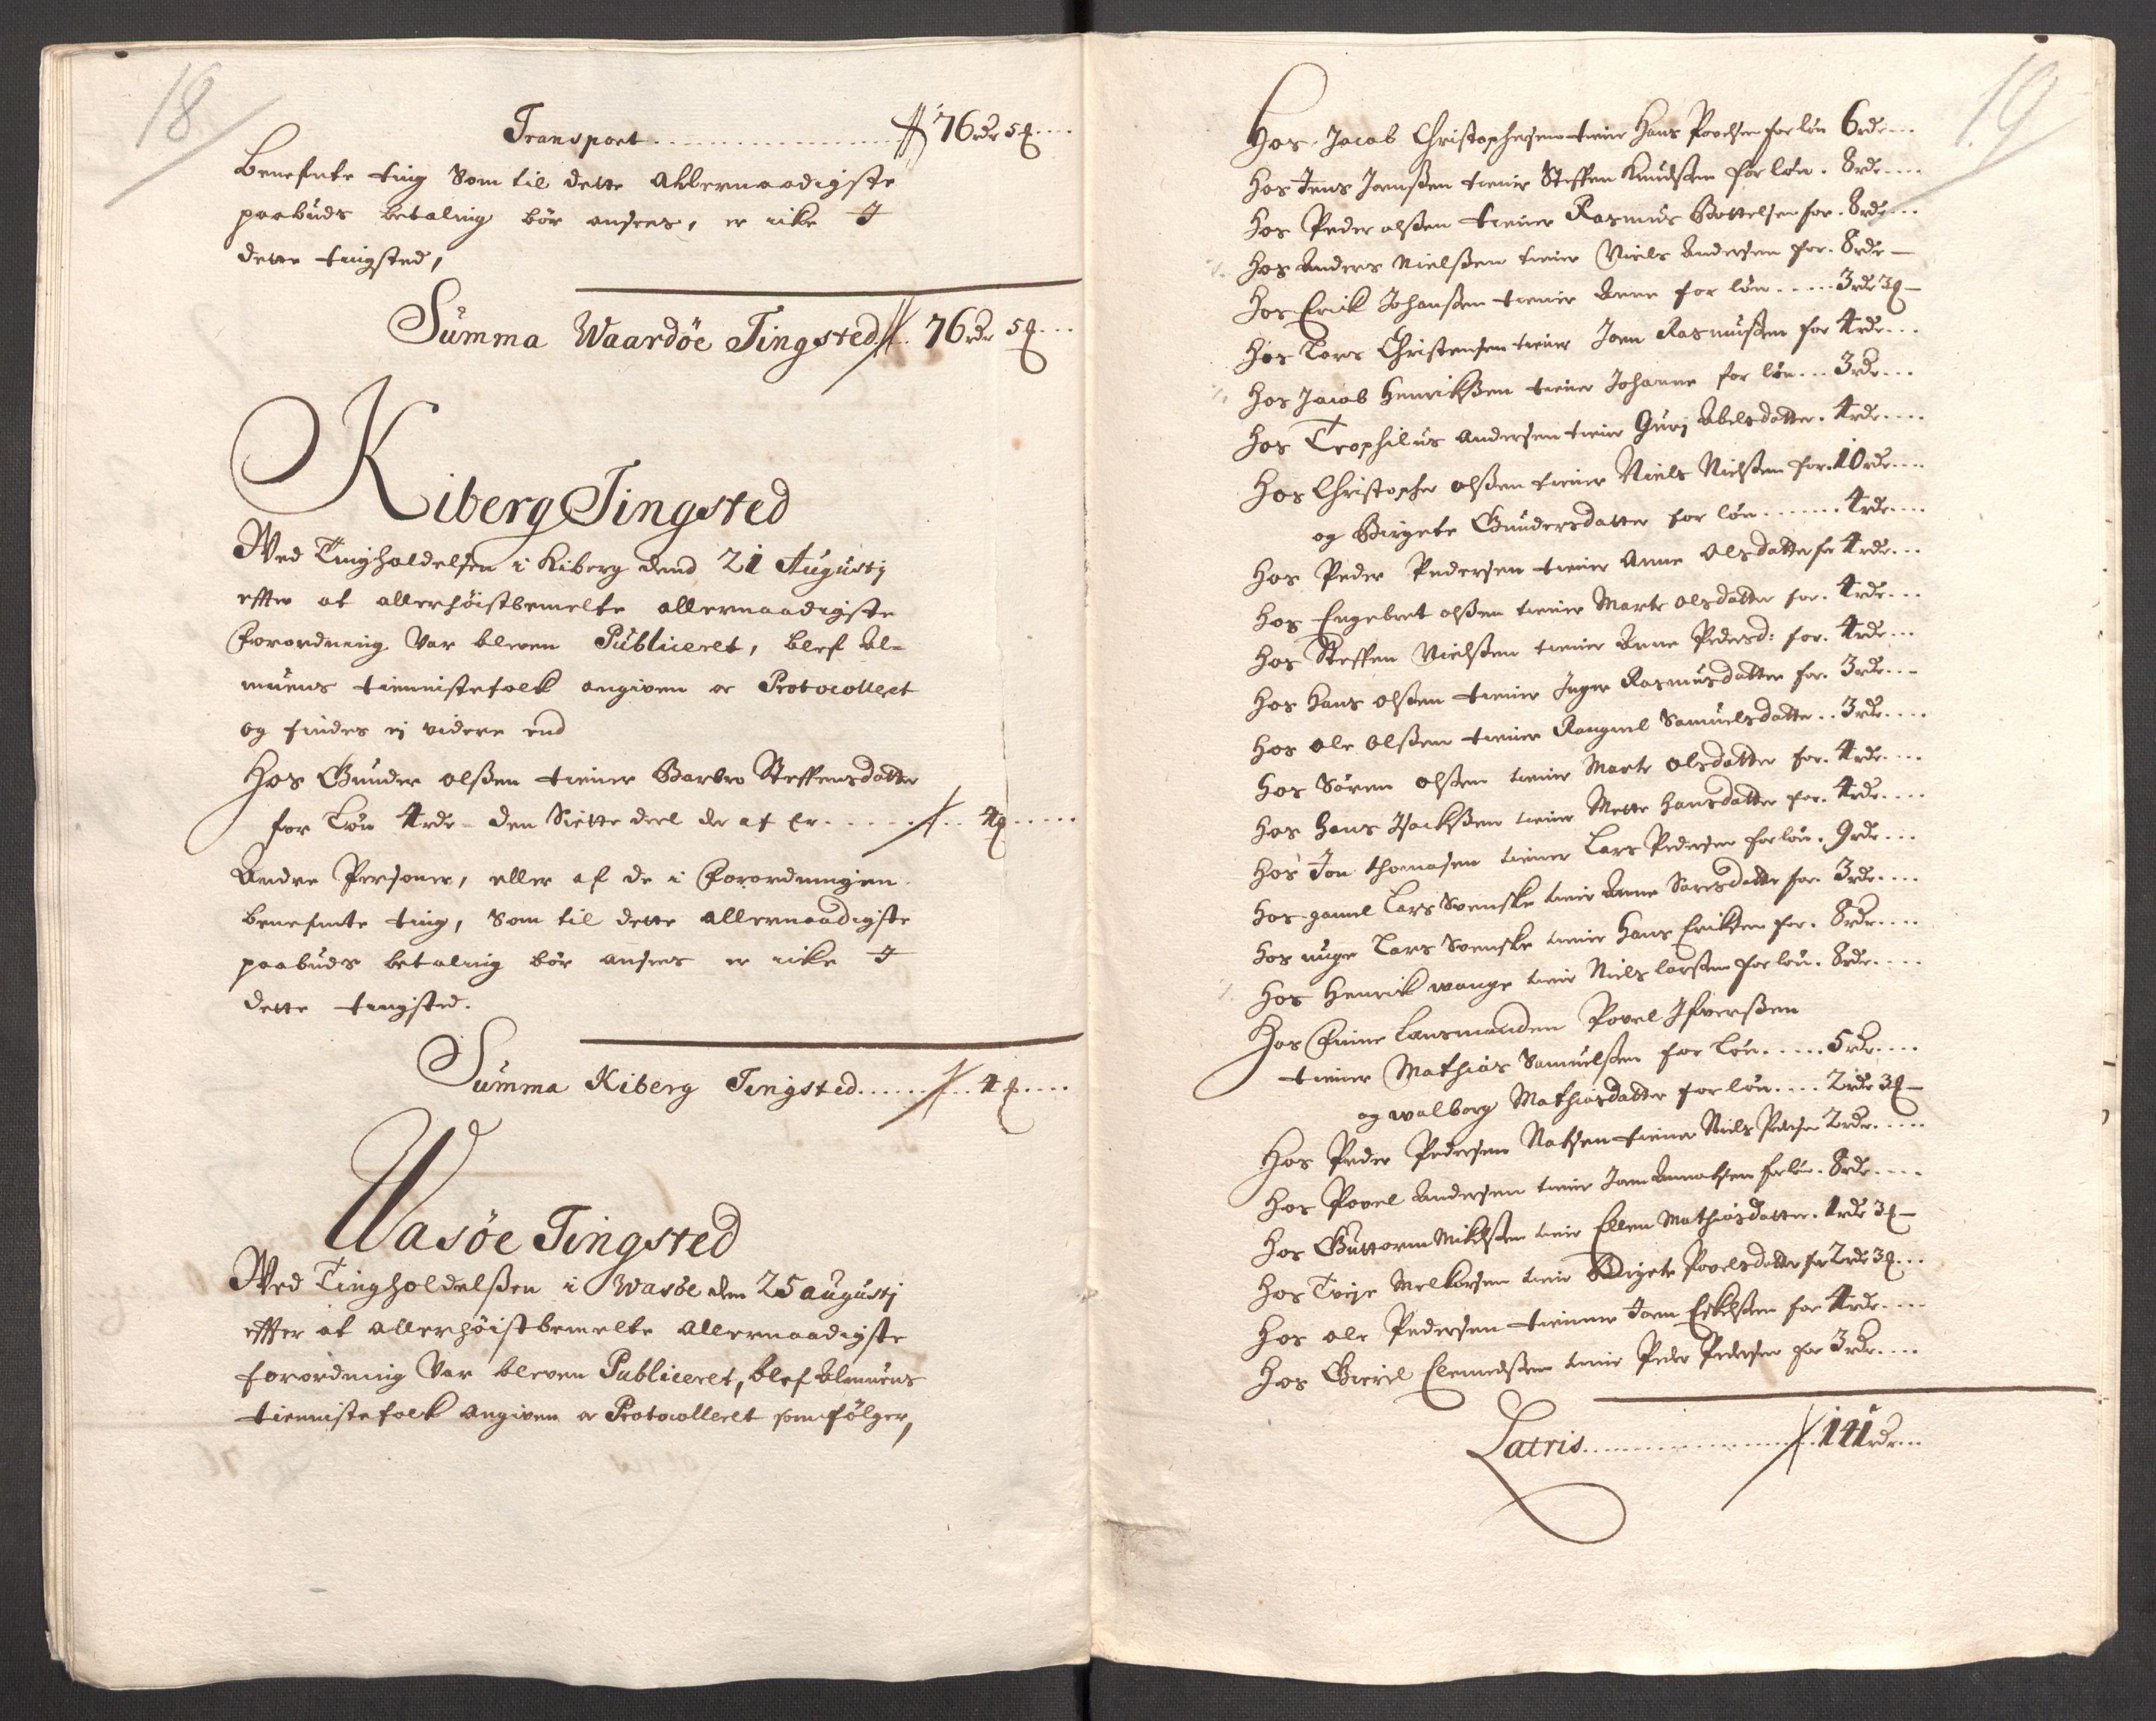 18
Transport ........ 76 rdr 5 ß ....
Benefnte ting Som til dette Allernaadigste
paabuds betaling bør ansees, er icke J
dette tingsted,
Summa Waardöe Tingsted // 76 rdr 5 ß ...
Kiberg Tingsted
Wed Tingholdelsen i Kiberg dend 21 Augustj
effter at allerhöistbemelte allernaadigste
Forordning Var bleven Publiceret, blef Al-
muens tiennistefolk angiven oc Protocolleret
og findes ej videre end
Hos Gunder olßen tiener Barbro Steffensdatter
for Løn 4 rdr - den Siette deel der af er ...... 4 ß ....
Andre Personer, eller af de i Forordningen
benefnte ting, Som til dette allernaadigste
paabuds betaling bör ansees er icke J
dette tingsted.
Summa Kiberg Tingsted ....... 4 ß ....
Wasöe Tingsted
Wed Tingholdelßen i Wasöe den 25 augustj
effter at allerhöistbemelte allernaadigste
forordning Var bleven Publiceret, blef Almuens
tiennistefolk angiven oc Protocolleret som fölger,
19
Hos Jacob Christophersen tiener Hans Povelsen for løn 6 rdr ...
Hos Jens Jonsßen tiener Steffen Knudsßen for løn . 8 rdr ....
Hos Peder olßen tiener Rasmus Bottelsen for . 8 rdr ...
Hos Anders Nielßen tiener Niels Andersen for . 8 rdr —
Hos Erick Johansßen tiener Anne for løn ..... 3 rdr 3 ß —
Hos Lars Christensen tiener Joen Rasmusßen for 4 rdr ...
Hos Jacob Henrikßen tiener Johanne for løn ... 3 rdr ...
Hos Teophilus Andersen tiener Gurj Abelsdatter . 4 rdr ....
Hos Christopher olßen tiener Niels Nielßen for . 10 rdr ....
og Birgete Gundersdatter for løn ....... 4 rdr ....
Hos Peder Pedersen tiener Anne Olsdatter for 4 rdr ...
Hos Engebret olßen tiener Marte olsdatter for . 4 rdr ...
Hos Steffen Nielßen tiener Anne Pedersd: for . 4 rdr ...
Hos Hans olßen tiener Inger Rasmusdatter for . 3 rdr ...
Hos ole olßen tiener Rangnel Samuelsdatter .. 3 rdr ....
Hos Sören olßen tiener Marte olsdatter for . 4 rdr ....
Hos Hans Isackßen tiener Mette Hansdatter for . 4 rdr ....
Hos Jon thomasen tiener Lars Pedersen for løn . 9 rdr ...
Hos gamel Lars Svenske tiener Anne Larsdatter for . 3 rdr ....
Hos unge Lars Svenske tiener Hans Erikßen for . 8 rdr ....
Hos Henrick wange tiener Niels larßen for løn . 8 rdr ....
Hos Finne Lensmanden Povel Ifverßen
tiener Mathias Samuelßen for Løn ..... 5 rdr ....
og walborg Mathiasdatter for løn .... 2 rdr 3 ß —
Hos Peder Pedersen tiener Niels Pedersen 2 rdr .....
Hos Povel Andersen tiener for løn . 8 rdr ....
Hos Guttorm Mikelßen tiener Ellen Mathiasdatter . 1 rdr 3 ß —
Hos Melkorsen tiener Birgete Povelsdatter for 2 rdr 3 ß ...
Hos ole Pedersen tienner Joen Eskelßen for 4 rdr ....
Hos tiener Peder Pedersen for 3 rdr ....
Latris .............. 141 rdr ...